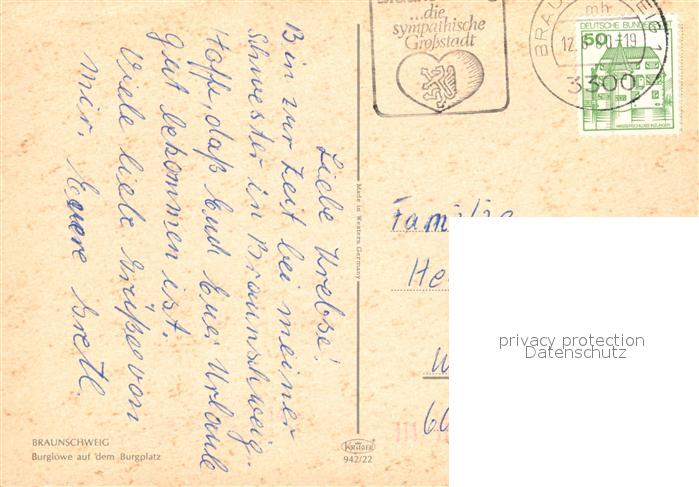 ...die
sympathische
Großstadt
mb
12.
-19
3300
DEUTSCHE BUNDESPOST
50
WASSERSCHLOSS INZLINGEN
Liebe Krebse!
Bin zur Zeit bei meiner
Schwester in Braunschweig.
Hoffe, daß Euch Euer Urlaub
gut bekommen ist.
Viele liebe Grüße von
mir. Euere Gretl.
Made in Western Germany
Familie
privacy protection
Datenschutz
BRAUNSCHWEIG
Burglöwe auf dem Burgplatz
KRÜGER
942/22